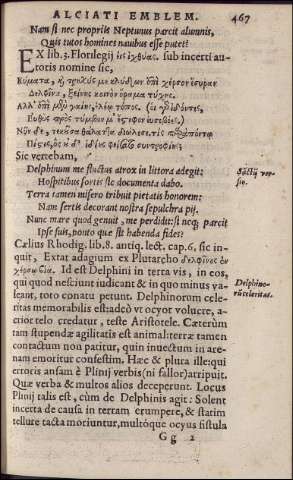 ALCIATI EMBLEM. 467
Nam si nec propriis Neptunus parcit alumnis,
Quis tutos homines nauibus esse putet?
EX lib. 3. Florilegij εἰς ἰχθύας. sub incerti au-
toris nomine sic,
Κύματα, ἢ
Δελφῖνα, ξείνοις κοινὸν ὅραμα τύχης.
Ἀλλ' ἐπὶ
Νῦν δὲ, τεκοῦσα θαλάσσα διώλεσε. τίς
Πίστις,
Sic vertebam,
Delphinum me fluctus atrox in littora adegit;
Hospitibus sortis sic documenta dabo.
Terra tamen misero tribuit pietatis honorem:
Nam sertis decorant nostra sepulchra pij.
Nunc mare quod genuit, me perdidit: si neq; parcit
Ipse suis, ponto quæ sit habenda fides?
Sactij ver-
sio.
Cælius Rhodig. lib. 8. antiq. lect. cap. 6, sic in-
quit, Extat adagium ex Plutarcho δελφῖνες ἐν
χερσω βία. Id est Delphini in terra vis, in eos,
qui quod nesciunt iudicant & in quo minus va-
leant, toto conatu petunt. Delphinorum cele-
ritas memorabilis est: adeò vt ocyor volucre, a-
crior telo credatur, teste Aristotele. Cæterùm
tam stupendæ agilitatis est animal: terræ tamen
contactum non patitur, quin inuectum in are-
nam emoritur confestim. Hæc & plura ille: qui
erroris ansam è Plinij verbis (ni fallor) arripuit.
Quæ verba & multos alios deceperunt. Locus
Plinij talis est, cùm de Delphinis agit: Solent
incerta de causa in terram erumpere, & statim
tellure tacta moriuntur, multóque ocyus fistula
Delphino-
rū celeritas.
G g 2